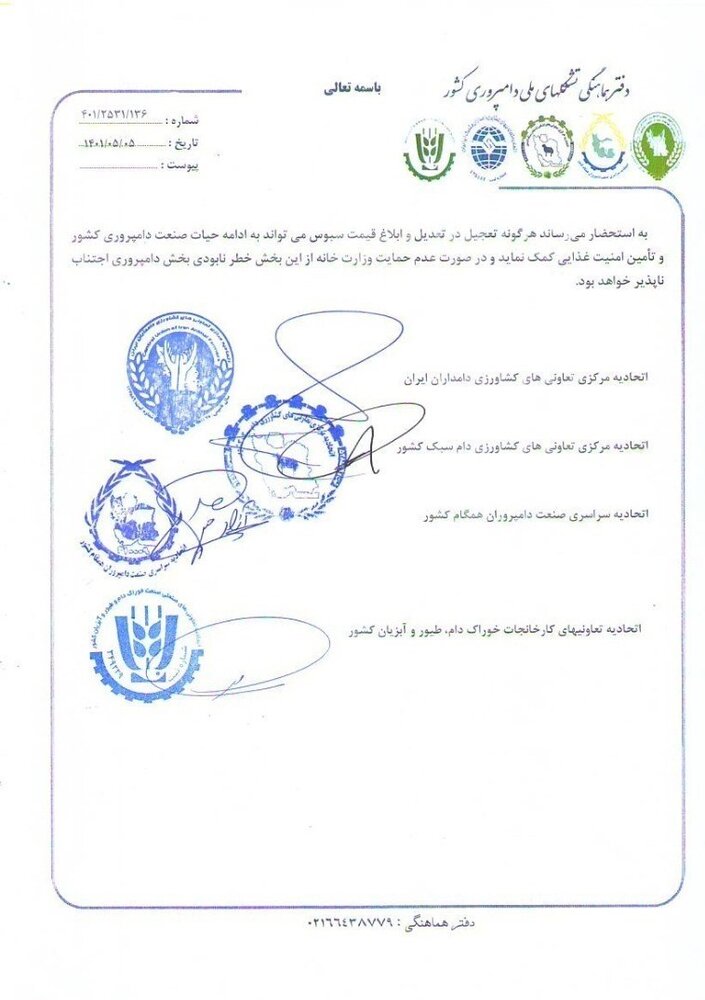 دفتر هماهنگی تشکلهای ملی دامپروری کشور
باسمه تعالی
شماره : ۴۰۱/۲۵۳۱/۱۳۶
تاریخ : ۱۴۰۱/۰۵/۰۵
پیوست :
به استحضار می‌رساند هرگونه تعجیل در تعدیل و ابلاغ قیمت سبوس می تواند به ادامه حیات صنعت دامپروری کشور
و تأمین امنیت غذایی کمک نماید و در صورت عدم حمایت وزارت خانه از این بخش خطر نابودی بخش دامپروری اجتناب
ناپذیر خواهد بود.
اتحادیه مرکزی تعاونی های کشاورزی دامداران ایران
اتحادیه مرکزی تعاونی های کشاورزی دام سبک کشور
اتحادیه سراسری صنعت دامپروران همگام کشور
اتحادیه سراسری صنعت دامپروران همگام کشور
اتحادیه تعاونیهای کارخانجات خوراک دام، طیور و آبزیان کشور
شماره ثبت
۳۴۹۲۳۹
دفتر هماهنگی : ۰۲۱۶۶۴۳۸۷۷۹